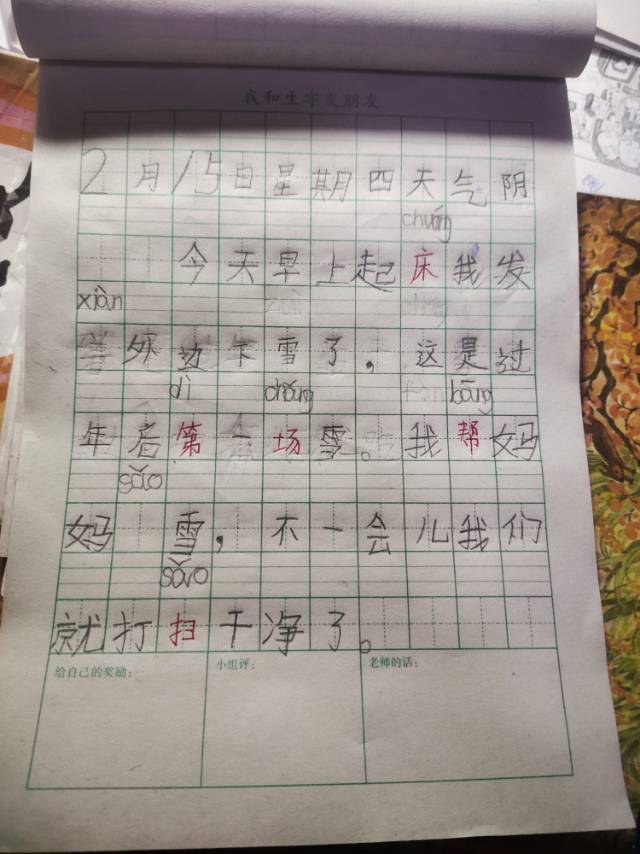 我和生字交朋友
2月15日星期四天气阴
chuáng
今天早上起床我发
xiàn
外边下雪了，这是过
dì chǎng bāng
年后第一场雪。我帮妈
sǎo
妈 雪，不一会儿我们
sǎo
就打扫干净了。
给自己的奖励： 小组评： 老师的话：